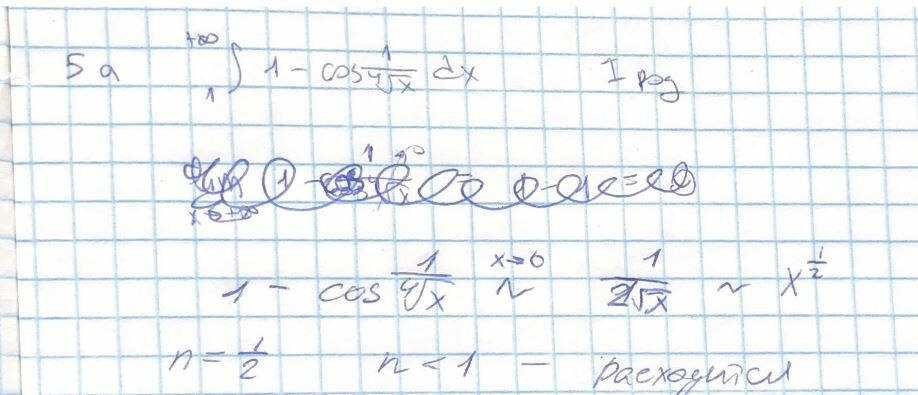 5 а ∫₁^{+∞} 1 - cos 1/⁴√x dx I род
1 - cos 1/⁴√x ~ (x→0) 1/2√x ~ x^{1/2}
n = 1/2 n < 1 — расходится